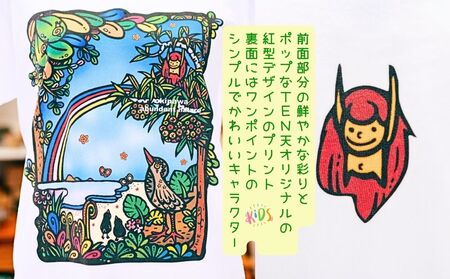 前面部分の鮮やかな彩りと
ポップなTEN天オリジナルの
紅型デザインのプリント
裏面にはワンポイントの
シンプルでかわいいキャラクター
KiDS
okinawa
abundant nature